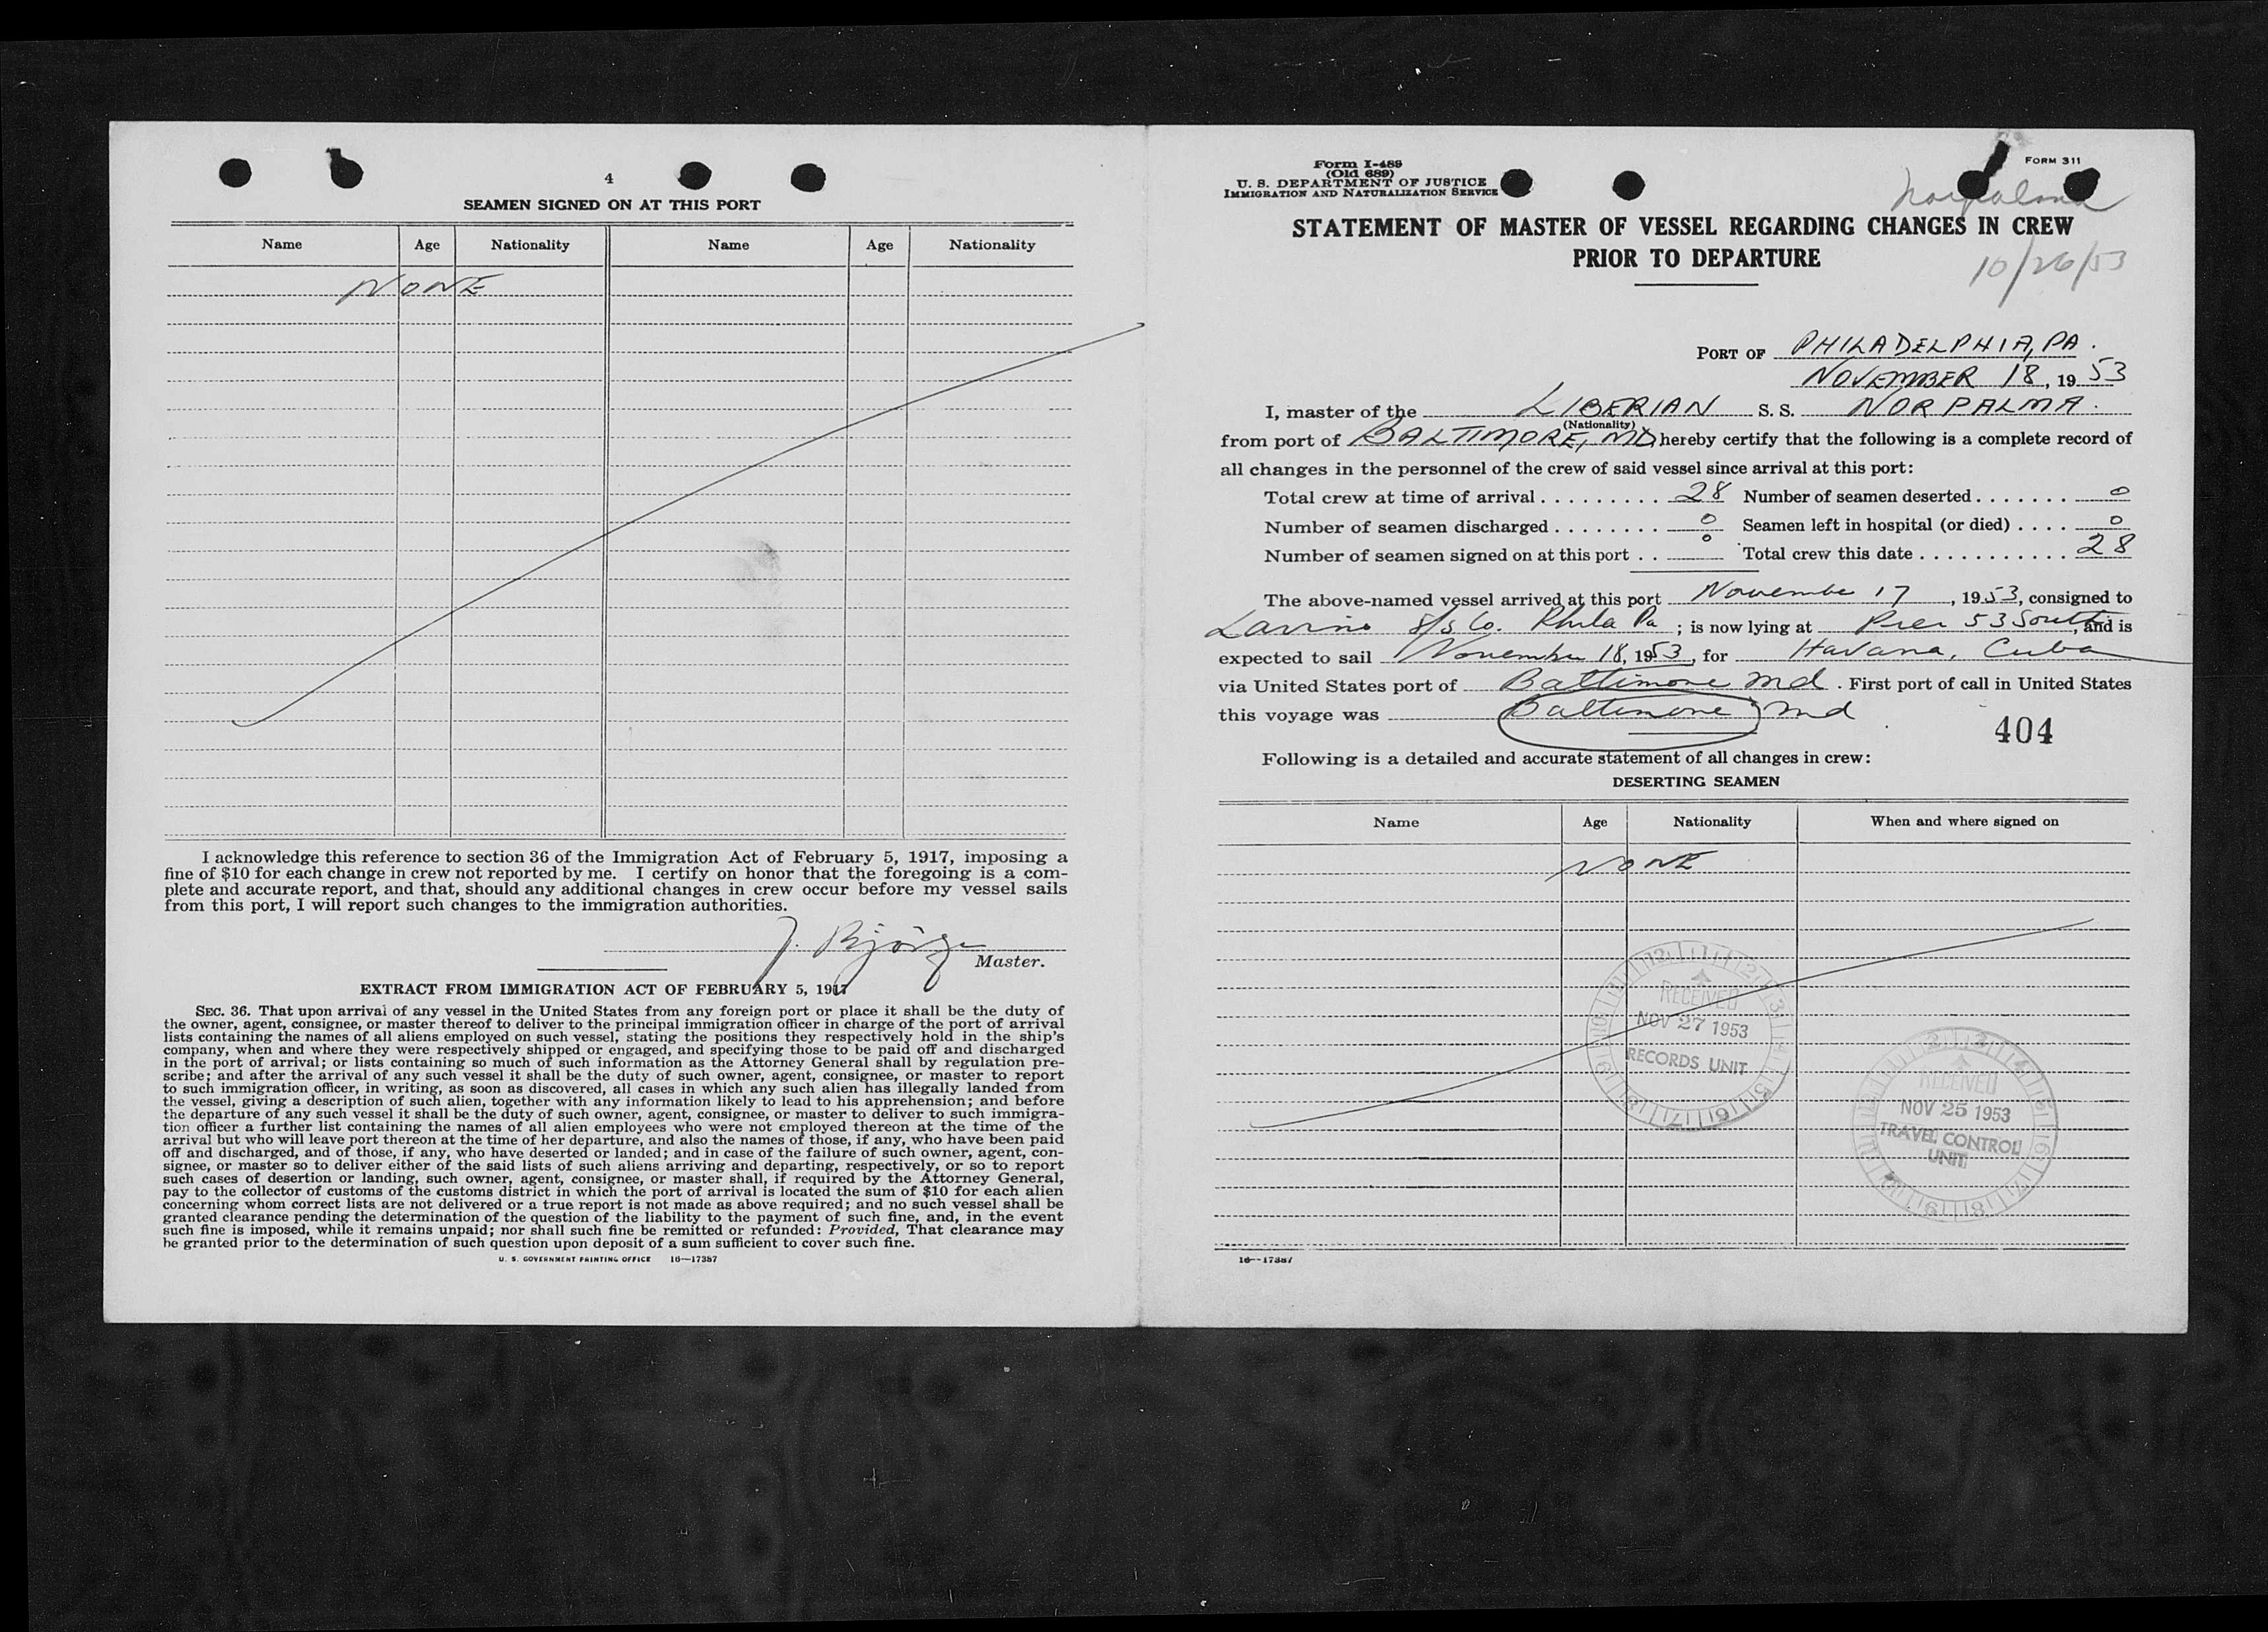 4
SEAMEN SIGNED ON AT THIS PORT
Name Age Nationality Name Age Nationality
NONE
I acknowledge this reference to section 36 of the Immigration Act of February 5, 1917, imposing a
fine of $10 for each change in crew not reported by me. I certify on honor that the foregoing is a com-
plete and accurate report, and that, should any additional changes in crew occur before my vessel sails
from this port, I will report such changes to the immigration authorities.
J. Bjørge
Master.
EXTRACT FROM IMMIGRATION ACT OF FEBRUARY 5, 1917
SEC. 36. That upon arrival of any vessel in the United States from any foreign port or place it shall be the duty of
the owner, agent, consignee, or master thereof to deliver to the principal immigration officer in charge of the port of arrival
lists containing the names of all aliens employed on such vessel, stating the positions they respectively hold in the ship's
company, when and where they were respectively shipped or engaged, and specifying those to be paid off and discharged
in the port of arrival; or lists containing so much of such information as the Attorney General shall by regulation pre-
scribe; and after the arrival of any such vessel it shall be the duty of such owner, agent, consignee, or master to report
to such immigration officer, in writing, as soon as discovered, all cases in which any such alien has illegally landed from
the vessel, giving a description of such alien, together with any information likely to lead to his apprehension; and before
the departure of any such vessel it shall be the duty of such owner, agent, consignee, or master to deliver to such immigra-
tion officer a further list containing the names of all alien employees who were not employed thereon at the time of the
arrival but who will leave port thereon at the time of her departure, and also the names of those, if any, who have been paid
off and discharged, and of those, if any, who have deserted or landed; and in case of the failure of such owner, agent, con-
signee, or master so to deliver either of the said lists of such aliens arriving and departing, respectively, or so to report
such cases of desertion or landing, such owner, agent, consignee, or master shall, if required by the Attorney General,
pay to the collector of customs of the customs district in which the port of arrival is located the sum of $10 for each alien
concerning whom correct lists are not delivered or a true report is not made as above required; and no such vessel shall be
granted clearance pending the determination of the question of the liability to the payment of such fine, and, in the event
such fine is imposed, while it remains unpaid; nor shall such fine be remitted or refunded: Provided, That clearance may
be granted prior to the determination of such question upon deposit of a sum sufficient to cover such fine.
U. S. GOVERNMENT PRINTING OFFICE 16—17387
Form I-489
(Old 689)
U. S. DEPARTMENT OF JUSTICE
IMMIGRATION AND NATURALIZATION SERVICE
FORM 311
Norpalma
STATEMENT OF MASTER OF VESSEL REGARDING CHANGES IN CREW
PRIOR TO DEPARTURE
10/26/53
PORT OF PHILADELPHIA, PA.
NOVEMBER 18, 1953
I, master of the LIBERIAN S. S. NORPALMA.
(Nationality)
from port of BALTIMORE, MD hereby certify that the following is a complete record of
all changes in the personnel of the crew of said vessel since arrival at this port:
Total crew at time of arrival . . . . . . . . . . 28 Number of seamen deserted . . . . . . . 0
Number of seamen discharged . . . . . . . . 0 Seamen left in hospital (or died) . . . . 0
Number of seamen signed on at this port . . 0 Total crew this date . . . . . . . . . . . 28
The above-named vessel arrived at this port November 17, 1953, consigned to
Lavino S/S Co. Phila Pa ; is now lying at Pier 53 South, and is
expected to sail November 18, 1953, for Havana, Cuba
via United States port of Baltimore Md . First port of call in United States
this voyage was Baltimore Md
404
Following is a detailed and accurate statement of all changes in crew:
DESERTING SEAMEN
Name Age Nationality When and where signed on
NONE
RECEIVED
NOV 27 1953
RECORDS UNIT
RECEIVED
NOV 25 1953
TRAVEL CONTROL
UNIT
16—17387